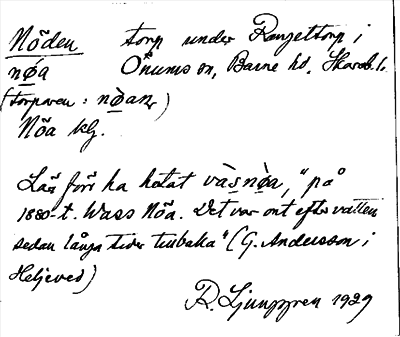 Nöden torp under Ranzettorp i
nø̀a Önums sn, Barne hd. Skarab. l.
(torparen: nø̀anr)
Nöa klg.
Lär förr ha hetat vàsnø̀a, "på
1880-t. Wass Nöa. Det var ont efter vatten
sedan långa tider tillbaka" (G. Andersson i
Heljeved)
R. Ljunggren 1929